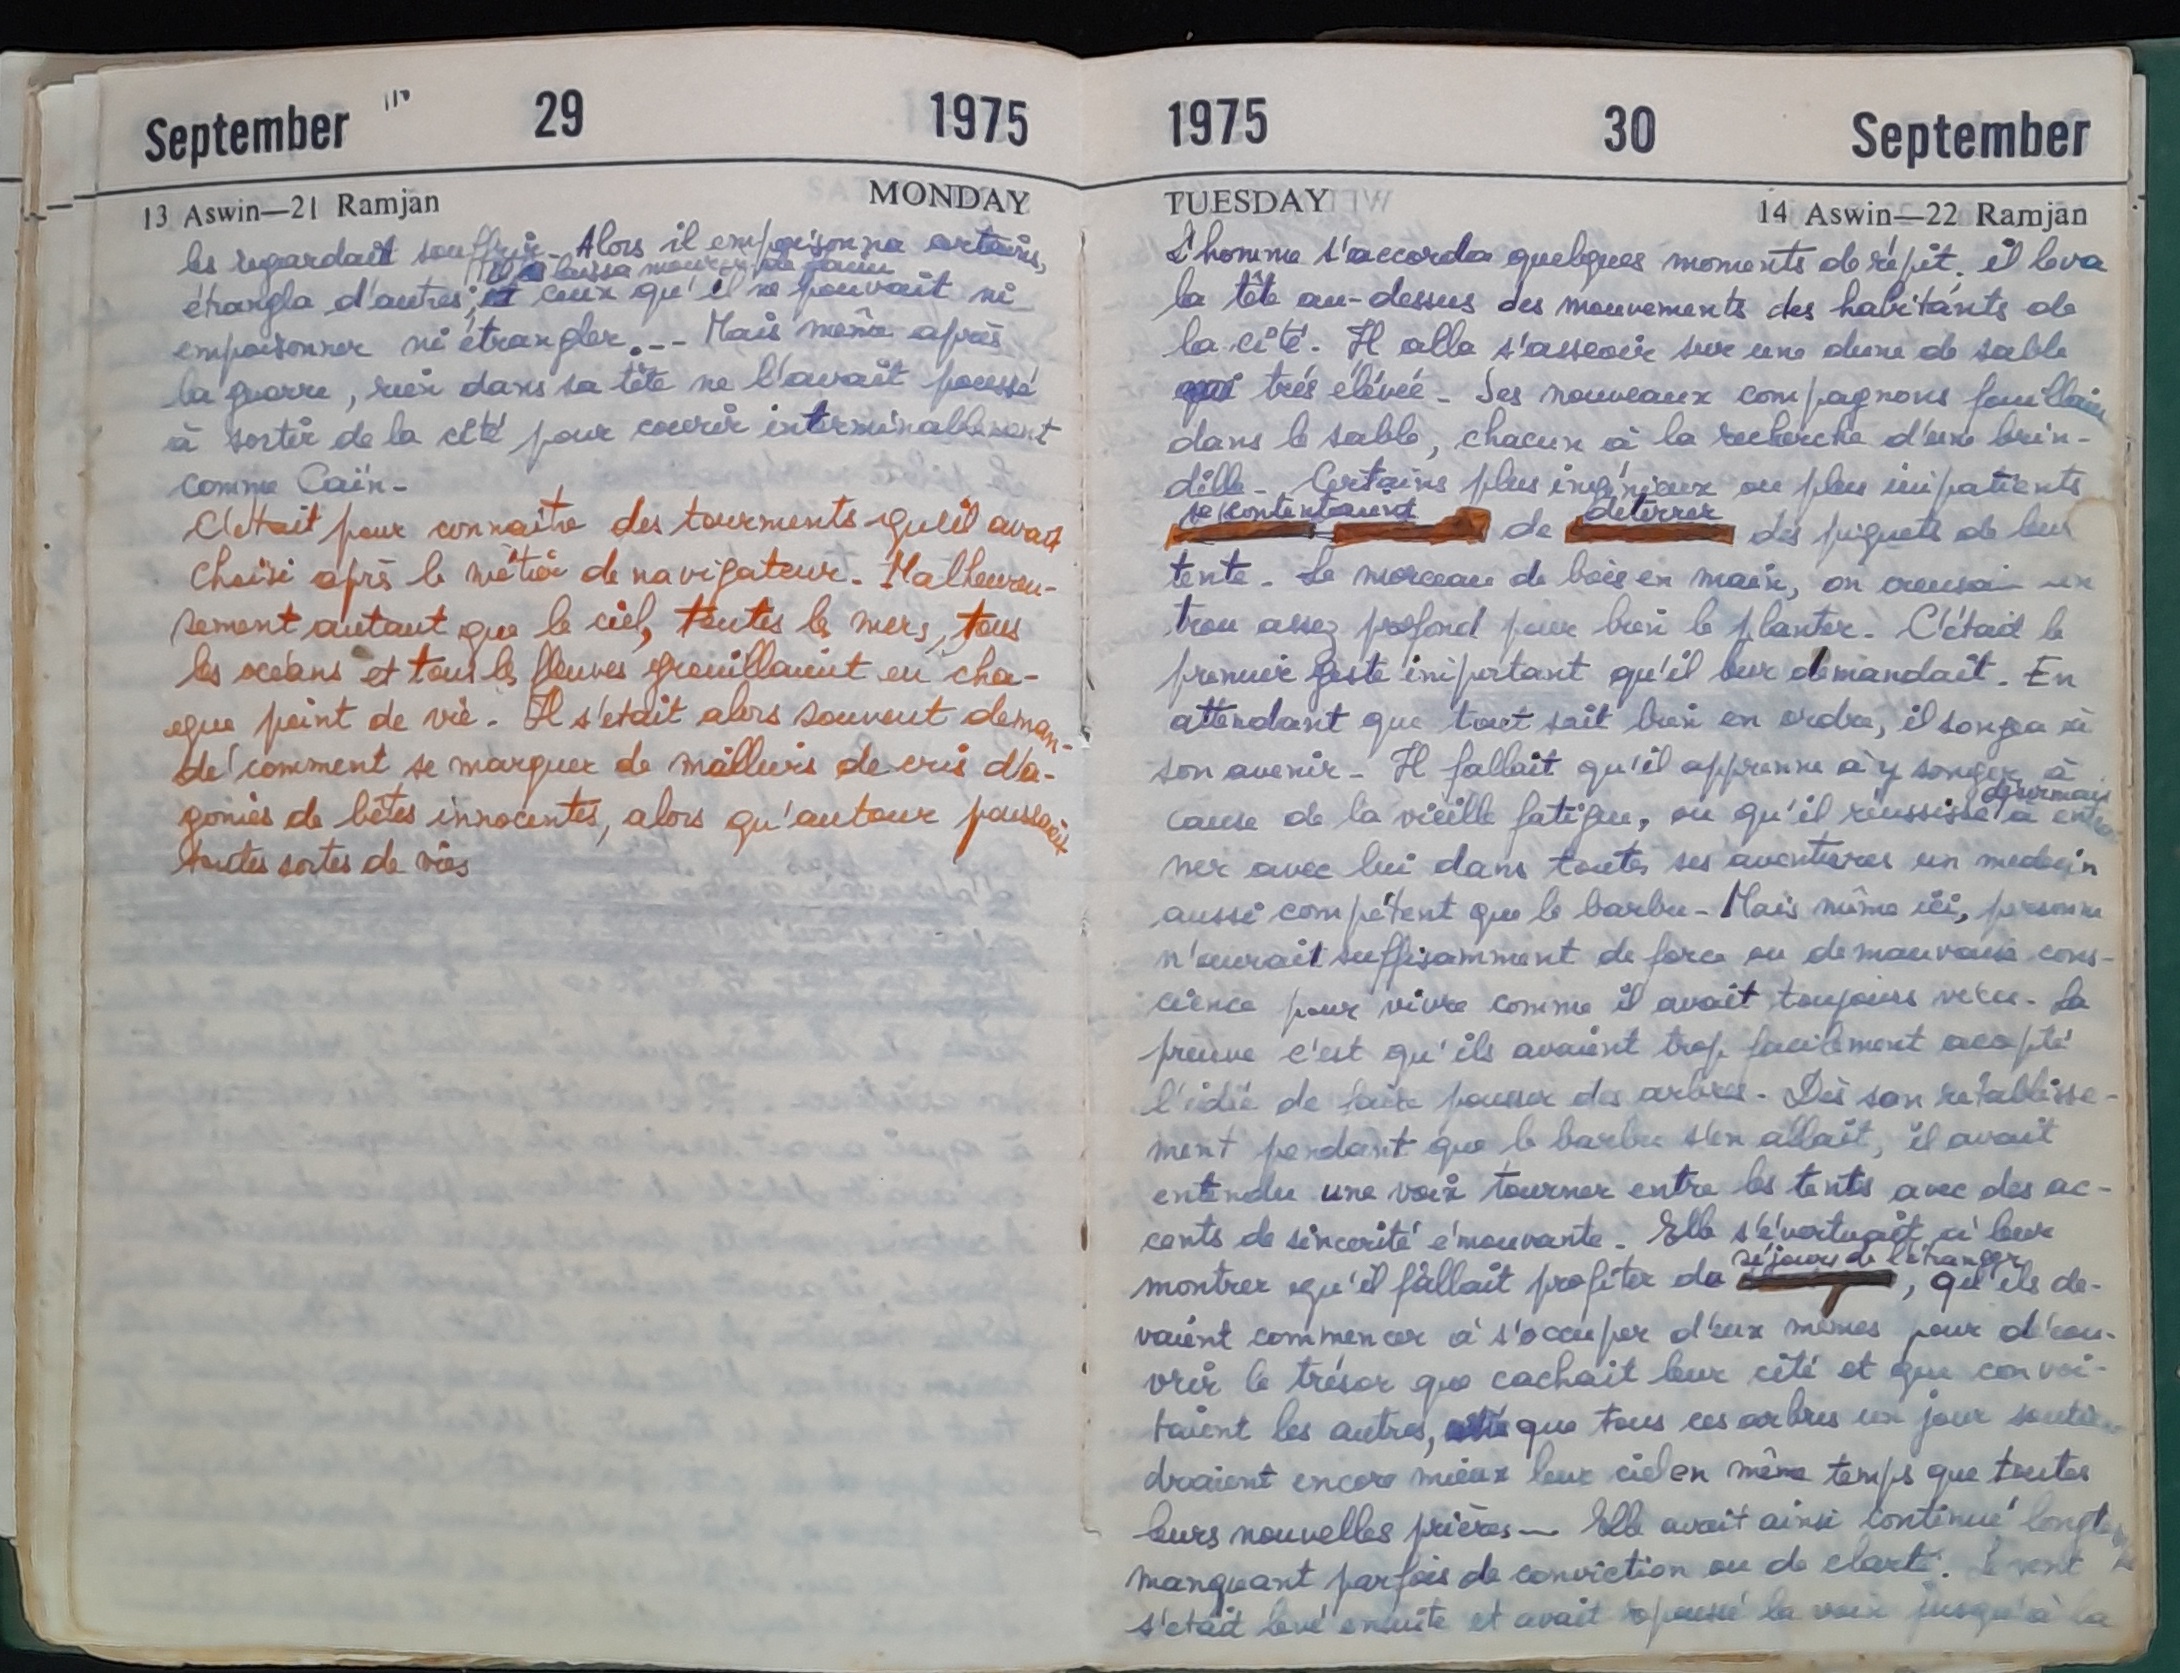 September 29 1975
13 Aswin—21 Ramjan MONDAY
les regardait souffrir. Alors il empoisonna certains,
il laissa mourir de faim
étrangla d'autres; et ceux qu'il ne pouvait ni
empoisonner ni étrangler... Mais même après
la guerre, rien dans sa tête ne l'avait poussé
à sortir de la cité pour courir interminablement
comme Caïn-
C'était pour connaître des tourments qu'il avait
choisi après le métier de navigateur. Malheureu-
sement autant que le ciel, toutes les mers, tous
les océans et tous les fleuves grouillaient en cha-
que point de vie. Il s'était alors souvent deman-
dé comment se marquer de milliers de cris d'a-
gonies de bêtes innocentes, alors qu'autour poussaient
toutes sortes de vies
1975 30 September
TUESDAY 14 Aswin—22 Ramjan
L'homme s'accorda quelques moments de répit. il leva
la tête au-dessus des mouvements des habitants de
la cité. Il alla s'asseoir sur une dune de sable
très élévée. Ses nouveaux compagnons fouillaient
dans le sable, chacun à la recherche d'une brin-
dille. Certains plus ingénieux ou plus impatients
se contentaient de déterrer des piquets de leur
tente. Le morceau de bois en main, on creusait un
trou assez profond pour bien le planter. C'était le
premier geste important qu'il leur demandait. En
attendant que tout soit bien en ordre, il songea à
son avenir. Il fallait qu'il apprenne à y songer à
désormais
cause de la vieille fatigue, ou qu'il réussisse à entraî-
ner avec lui dans toutes ses aventures un medecin
aussi compétent que le barbu. Mais même ici, personne
n'aurait suffisamment de force ou de mauvaise cons-
cience pour vivre comme il avait toujours vécu. La
preuve c'est qu'ils avaient trop facilement accepté
l'idée de faire pousser des arbres. Dès son retablisse-
ment pendant que le barbu s'en allait, il avait
entendu une voix tourner entre les tentes avec des ac-
cents de sincerité émouvante. Elle s'évertuait à leur
séjours de l'étranger
montrer qu'il fallait profiter du , qu'ils de-
vaient commencer à s'occuper d'eux mêmes pour décou-
vrir le trésor que cachait leur cité et que convoi-
taient les autres, que tous ces arbres un jour soutien-
draient encore mieux leur ciel en même temps que toutes
leurs nouvelles prières. Elle avait ainsi continué longtemps
manquant parfois de conviction ou de clarté. Le vent
s'était levé ensuite et avait repoussé la voix jusqu'à la